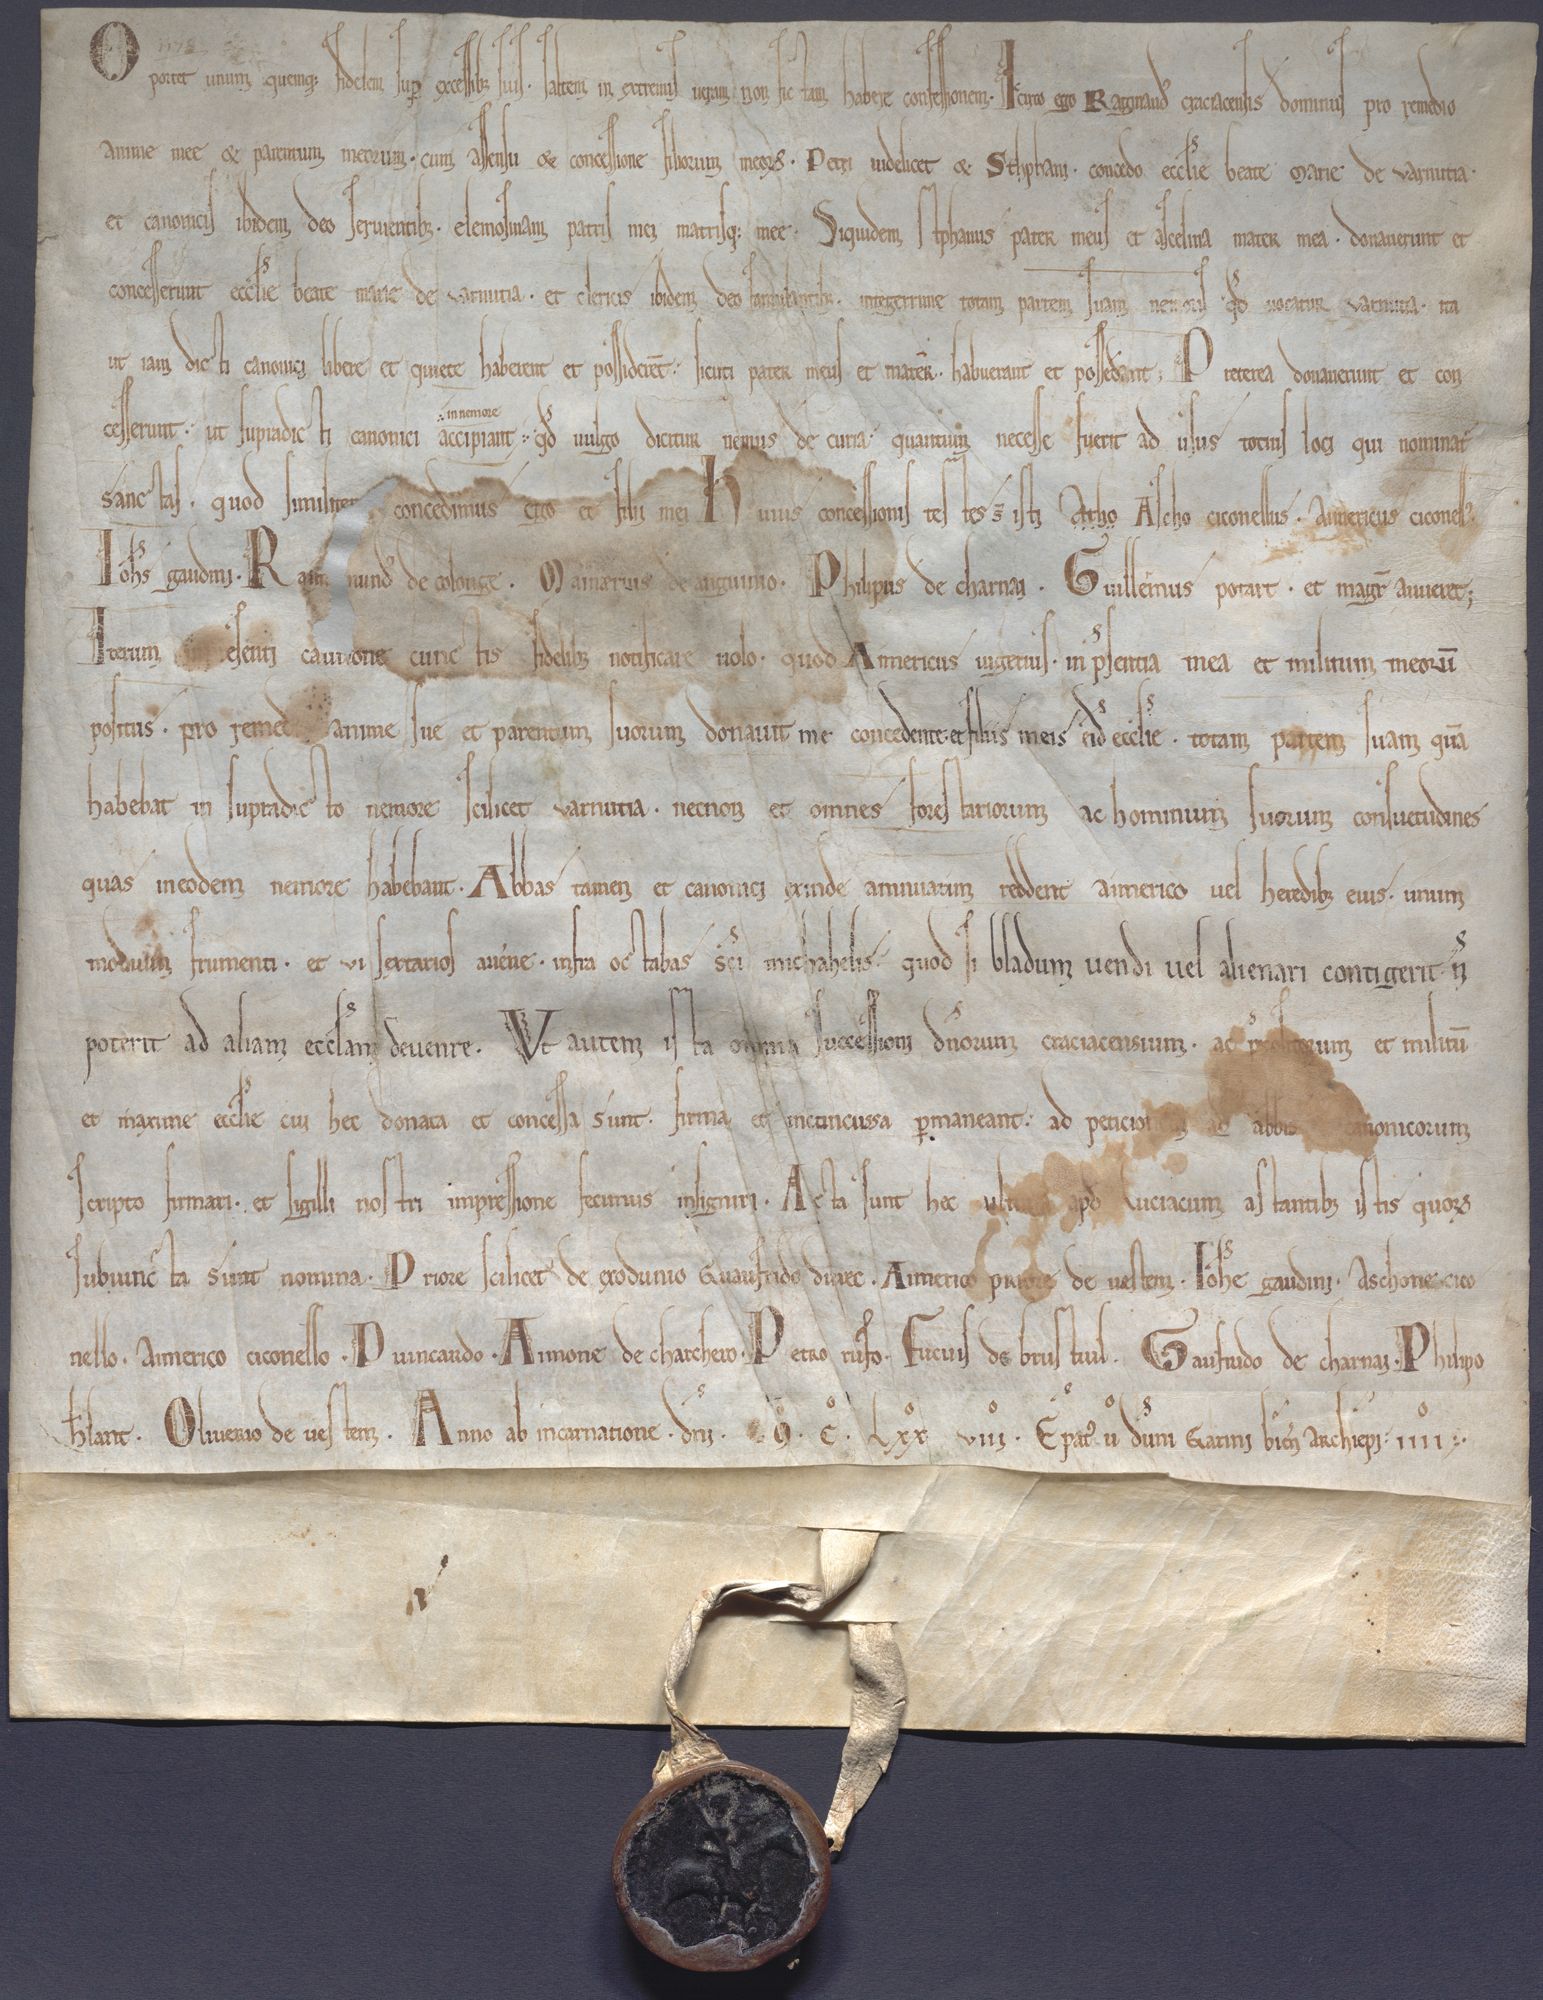 Oportet unum quemq; fidelem sup excessib; suis. saltem in extremis ueram non fictam habere confessionem. Icirco ego Raginaud craciacensis dominus pro remedio
anime mee & parentum meorum. cum assensu & concessione filiorum meorꝝ. Petri uidelicet & Sthphani. concedo ecclie beate marie de varnutia.
et canonicis ibidem deo seruientib;. elemosinam patris mei matrisq; mee. Siquidem stphanus pater meus et ascelina mater mea. donauerunt et
concesserunt ecclie beate marie de varnutia. et clericis ibidem deo famulantib;. integerrime totam partem suam nemoris qd uocatur varnutia. ita
ut iam dicti canonici libere et quiete haberent et possiderēt. sicuti pater meus et mater. habuerant et possedant; Preterea donauerunt et con
cesserunt. ut supradicti canonici accipiant in nemore qd uulgo dicitur nemus de curia. quantum necesse fuerit ad usus totius loci qui nominat
sanctas. quod similiter concedimus ego et filii mei Huius concessionis testes s̄ isti Atho Ascho ciconellus. Aimericus ciconell.
Iohs gaudini. Raimund de colonge. Mainerius de anguino. Philipus de charnai. Guillermus potart. et magr̄ aimeret;
Iterum esenti cautione cunctis fidelib; notificare uolo. quod Aimericus uigerius. in psentia mea et militum meorū
positus. pro remed anime sue et parentum suorum donauit me concedente et filiis meis eid ecclie. totam partem suam quā
habebat in supradicto nemore scilicet varnutia. necnon et omnes forestariorum ac hominum suorum consuetudines
quas in eodem nemore habebant. Abbas tamen et canonici exinde annuatim reddent aimerico uel heredib; eius. unum
modium frumenti. et vi sextarios auene. infra octabas sci michahelis. quod si bladum uendi uel alienari contigerit n̄
poterit ad aliam ecclam deuenire. Vt autem ista omnia successioni dnorum craciacensium. ac et militū
et maxime ecclie cui hec donata et concessa sunt. firma et inconcussa pmaneant. ad peticionem abbis canonicorum
scripto firmari. et sigilli nostri impressione fecimus insigniri. Acta sunt hec apd uciacum astantib; istis quorꝝ
subiuncta sunt nomina. Priore scilicet de exoduno Guaufrido Aimerico priore de uestem. Iohe gaudini. Aschone cico
nello. Aimerico ciconello. Puincaudo. Aimone de charchero. Petro rufo. Fucuis de brustuil. Gaufrido de charnai. Philipo
Oliuerio de uestem. Anno ab incarnatione. dni. M. C. Lxx viii. Epat ū dūni Garini archiepi: iiii